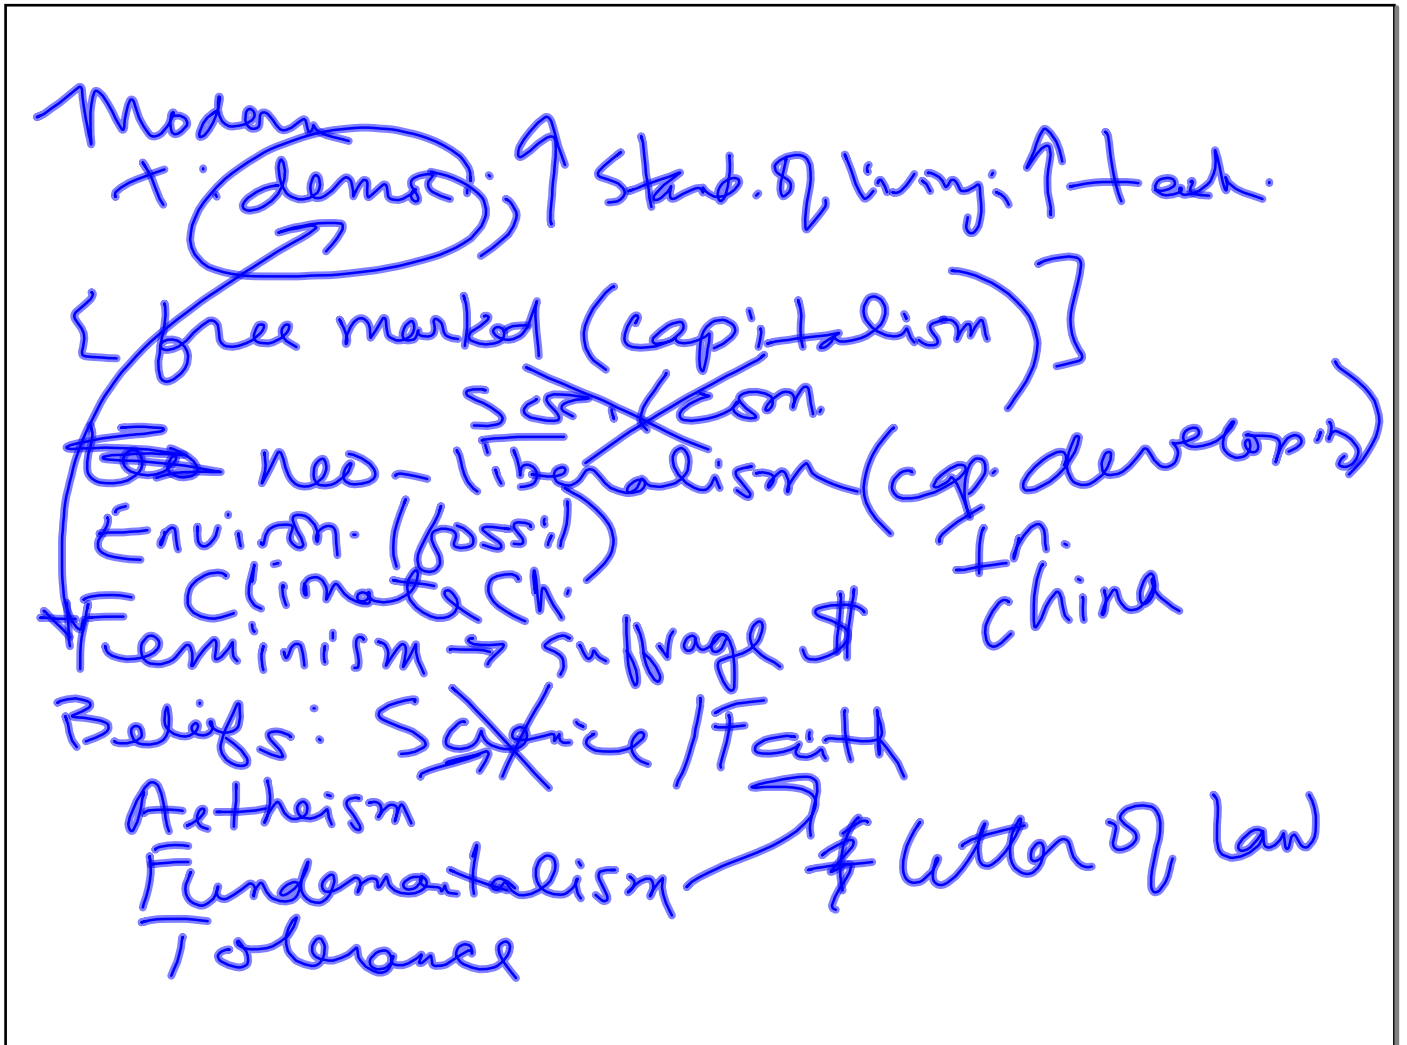 Modern
+ : democ.; ↑ Stand. of living; ↑ tech.
{ free market (capitalism) }
Soc. / com.
neo-liberalism (cap. developing)
Environ. (fossil) In.
Climate Ch. China
Feminism → suffrage $
Beliefs: Science / Faith
Aetheism
Fundementalism letter of law
Tolerance